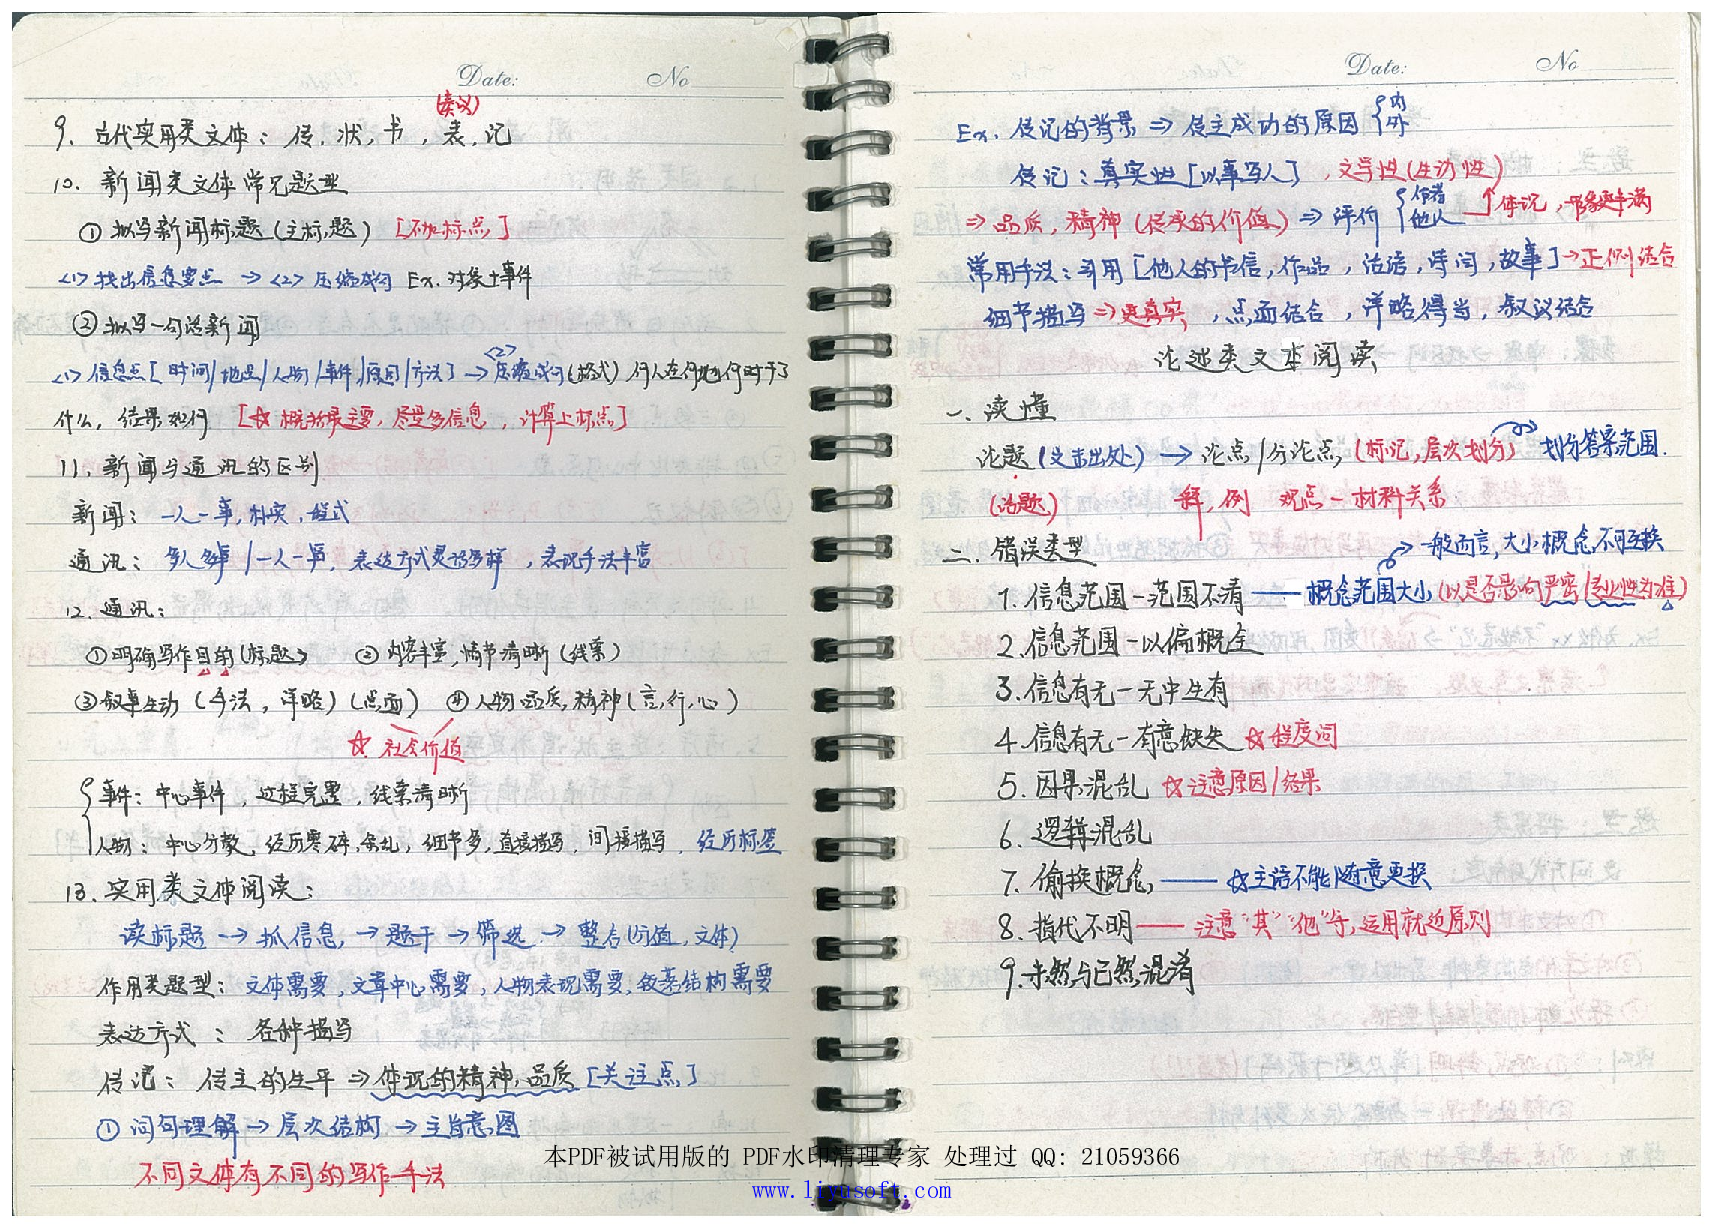 Date:    No
(奏议)
9. 古代实用类文体：传, 状, 书, 表, 记
10. 新闻类文体常见题型
①拟写新闻标题(主标题) [不加标点]
<1> 找出信息要点 → <2> 压缩成句 Ex. 对象+事件
②拟写一句话新闻
<1> 信息点[时间/地点/人物/事件/原因/方法] → <2> 压缩成句(格式) 何人在何地何时干了
什么, 结果如何 [☆概括最主要, 尽量多信息, 计算上标点]
11. 新闻与通讯的区别
新闻：一人一事, 朴实, 程式
通讯：多人多事/一人一事, 表达方式灵活多样, 表现手法丰富
12. 通讯：
①明确写作目的(标题) ②内容丰富, 情节清晰(线索)
③叙事生动(手法, 详略)(点面) ④人物品质, 精神(言, 行, 心)
☆ 社会价值
事件：中心事件, 过程完整, 线索清晰
人物：中心分散, 经历零碎, 杂乱, 细节多, 直接描写, 间接描写, 经历标签
13. 实用类文体阅读：
读标题 → 抓信息 → 题干 → 筛选 → 整合(价值, 文体)
作用类题型：文体需要, 文章中心需要, 人物表现需要, 叙差结构需要
表达方式：各种描写
传记：传主的生平 ⇒ 体现的精神, 品质 [关注点]
① 词句理解 → 层次结构 → 主旨意图
不同文体有不同的写作手法
Date:    No
Ex. 传记的背景 ⇒ 传主成功的原因 {内 外
传记：真实性[以事写人], 文学性(生动性)
⇒ 品质, 精神(传承的价值) ⇒ 评价 {作者 他人 → 体现, 形象更丰满
常用手法：引用[他人的书信, 作品, 话语, 诗词, 故事] → 正侧结合
细节描写 ⇒ 更真实, 点面结合, 详略得当, 叙议结合
论述类文本阅读
一. 读懂
论题(文末出处) → 论点/分论点, (标记, 层次划分) 划分答案范围.
(话题) 释, 例 观点－材料关系
二. 错误类型
→ 一般而言, 大小概念不可互换
1. 信息范围－范围不清 —— 概念范围大小(以是否影响严密/专业性为准)
2. 信息范围－以偏概全
3. 信息有无－无中生有
4. 信息有无－有意缺失 ☆程度词
5. 因果混乱 ☆注意原因/结果
6. 逻辑混乱
7. 偷换概念, —— ☆主语不能随意更换
8. 指代不明 —— 注意“其”“他”等, 运用就近原则
9. 未然与已然混淆
本PDF被试用版的 PDF水印清理专家 处理过 QQ: 21059366
www.liyusoft.com